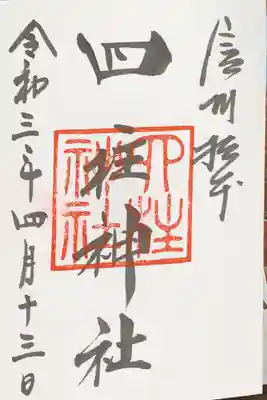 信州松本
四柱神社
四柱神社
令和三年四月十三日